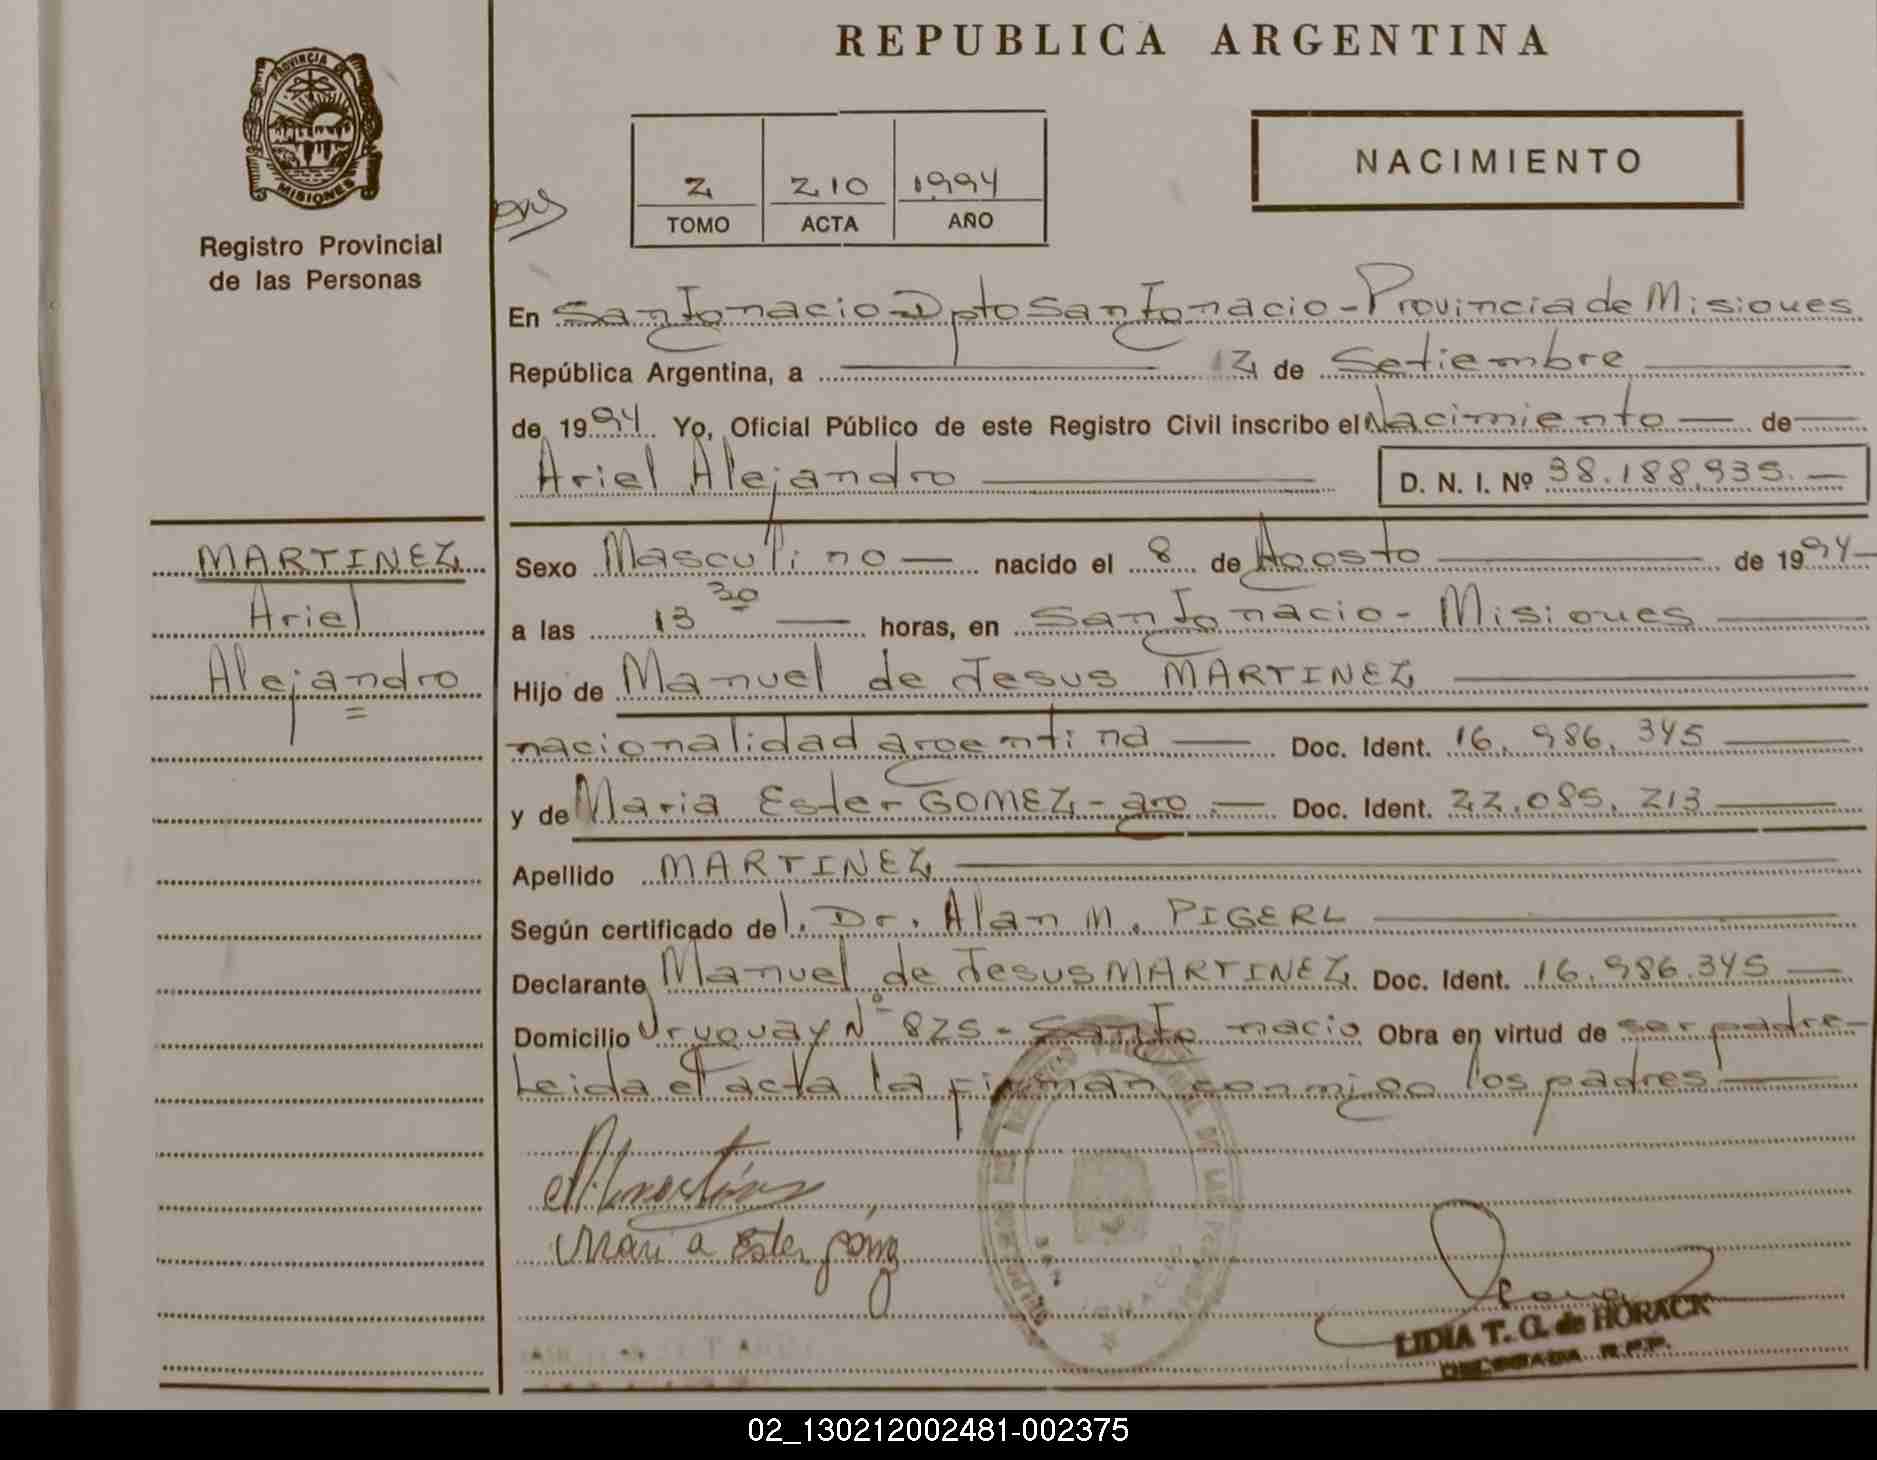 REPUBLICA ARGENTINA
PROVINCIA DE
MISIONES
Registro Provincial
de las Personas
2 210 1994
TOMO ACTA AÑO
NACIMIENTO
En San Ignacio Dpto San Ignacio - Provincia de Misiones
República Argentina, a 12 de Setiembre
de 1994 Yo, Oficial Público de este Registro Civil inscribo el Nacimiento de
Ariel Alejandro D. N. I. Nº 38.188.935.
MARTINEZ
Ariel
Alejandro
Sexo Masculino nacido el 8 de Agosto de 1994
a las 13 30 horas, en San Ignacio - Misiones
Hijo de Manuel de Jesus MARTINEZ
nacionalidad argentina Doc. Ident. 16.986.345
y de Maria Ester GOMEZ - arg. Doc. Ident. 22.085.213
Apellido MARTINEZ
Según certificado del. Dr. Alan M. PIGERL
Declarante Manuel de Jesus MARTINEZ Doc. Ident. 16.986.345
Domicilio Uruguay Nº 825 - San Ignacio Obra en virtud de ser padre
Leida el acta la firman conmigo los padres
Maria Ester
LIDIA T. G. de HORACK
DELEGADA R.P.P.
02_130212002481-002375